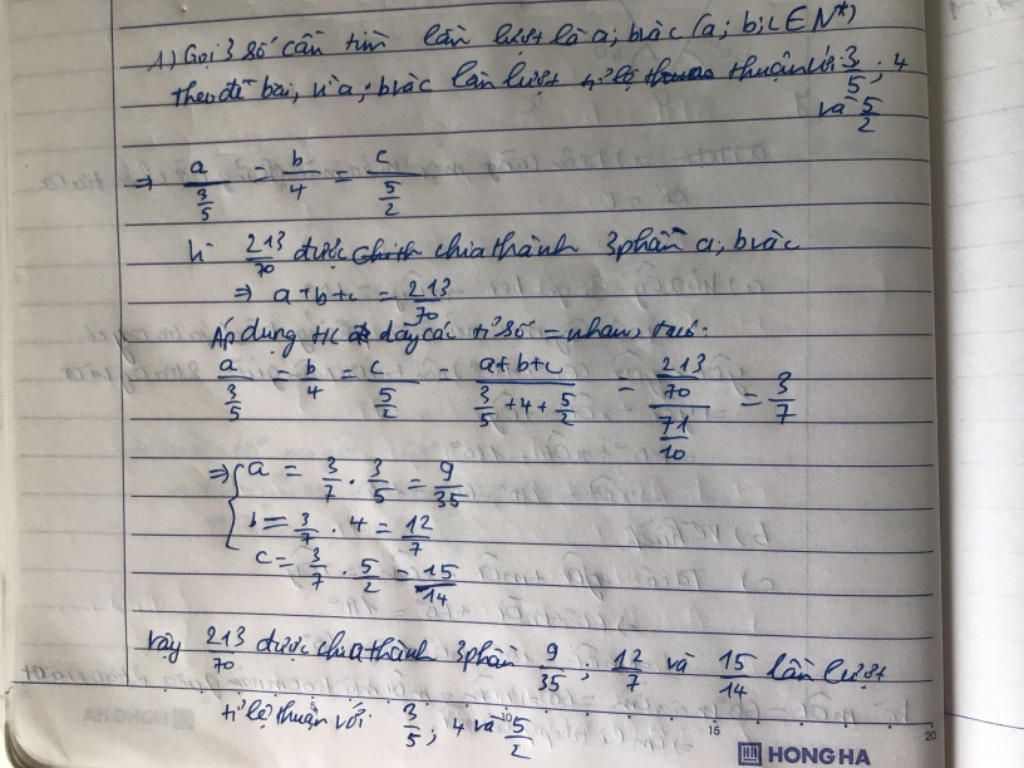 1) Gọi 3 số cần tìm lần lượt là a; b và c (a; b; c ∈ N*)
theo đề bài, vì a; b và c lần lượt tỉ lệ thuận với 3/5; 4
và 5/2
⇒ a/(3/5) = b/4 = c/(5/2)
Vì 213/70 được chia thành 3 phần a; b và c
⇒ a+b+c = 213/70
Áp dụng t/c dãy các tỉ số = nhau, ta có:
a/(3/5) = b/4 = c/(5/2) = (a+b+c)/(3/5+4+5/2) = (213/70)/(71/10) = 3/7
⇒ { a = 3/7 . 3/5 = 9/35
b = 3/7 . 4 = 12/7
c = 3/7 . 5/2 = 15/14
Vậy 213/70 được chia thành 3 phần 9/35; 12/7 và 15/14 lần lượt
tỉ lệ thuận với 3/5; 4 và 5/2
10 15 20
HH HONG HA